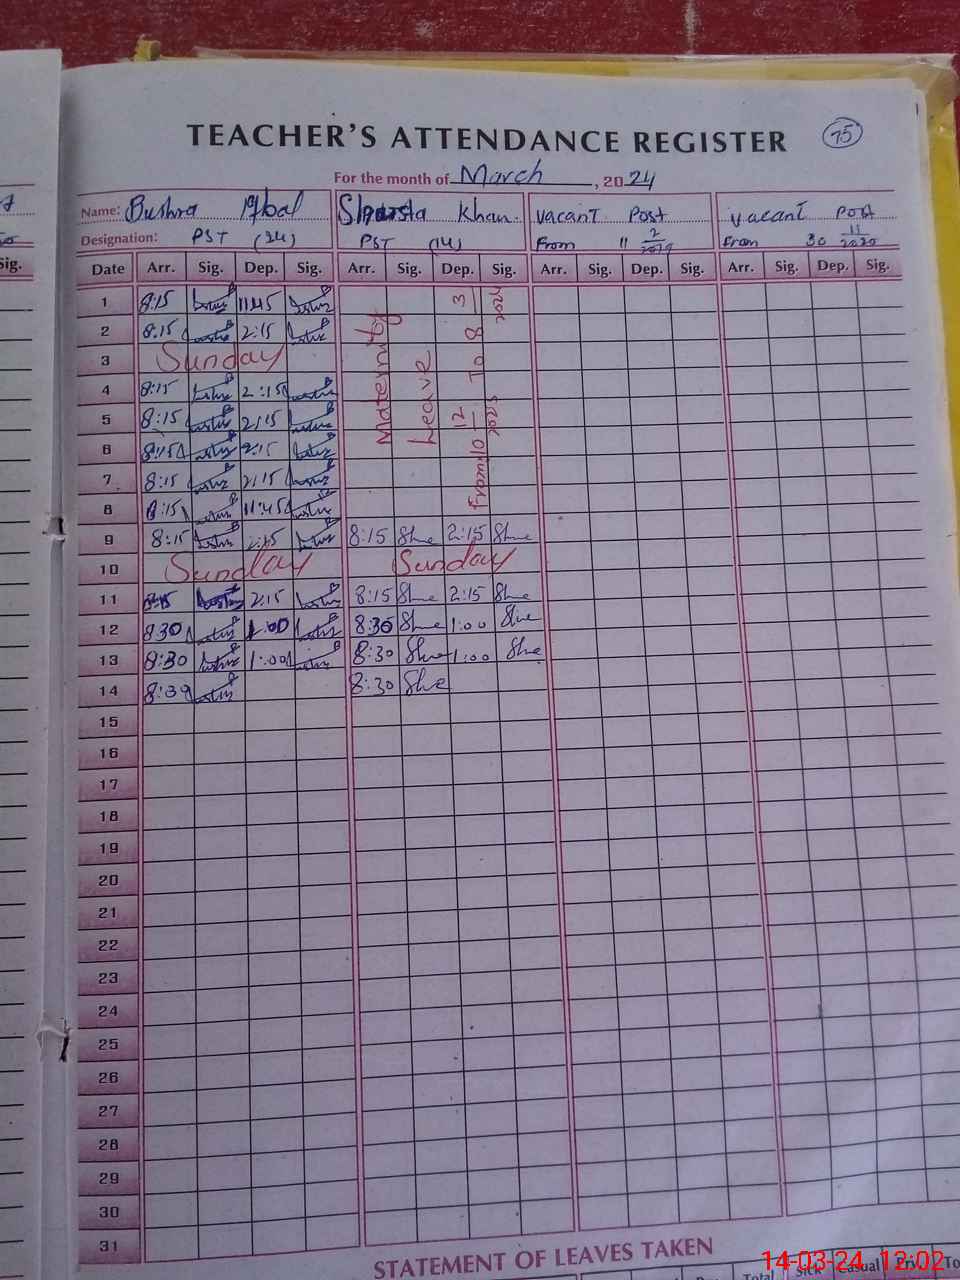 TEACHER'S ATTENDANCE REGISTER 75
For the month of March, 2024
Name: Bushra Iqbal Shaista Khan. Vacant Post Vacant Post
Designation: PST (34) PST (14) From 11 2 From 30 11 2020
Date Arr. Sig. Dep. Sig. Arr. Sig. Dep. Sig. Arr. Sig. Dep. Sig. Arr. Sig. Dep. Sig.
Maternity
Leave
From: 10 12 2023 To 8 3 2024
1 8:15 11:45
2 8:15 2:15
3 Sunday
4 8:15 2:15
5 8:15 2:15
6 8:15 2:15
7 8:15 2:15
8 8:15 11:45
9 8:15 2:15 8:15 She 2:15 She
10 Sunday Sunday
11 8:15 2:15 8:15 She 2:15 She
12 8:30 1:00 8:30 She 1:00 She
13 8:30 1:00 8:30 She 1:00 She
14 8:30 8:30 She
15
16
17
18
19
20
21
22
23
24
25
26
27
28
29
30
31
STATEMENT OF LEAVES TAKEN
Total Sick Casual Priv. To
14-03-24 12:02